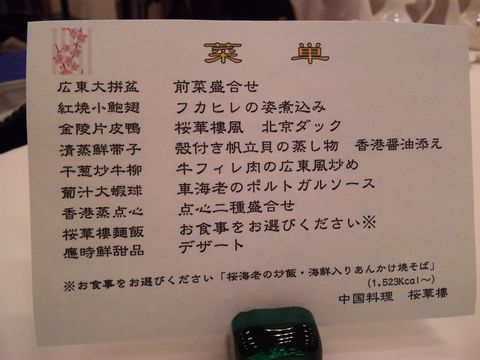 菜 単
広東大拼盆 前菜盛合せ
紅焼小鮑翅 フカヒレの姿煮込み
金陵片皮鴨 桜華樓風 北京ダック
清蒸鮮帯子 殻付き帆立貝の蒸し物 香港醤油添え
干葱炒牛柳 牛フィレ肉の広東風炒め
葡汁大蝦球 車海老のポルトガルソース
香港蒸点心 点心二種盛合せ
桜華樓麺飯 お食事をお選びください※
應時鮮甜品 デザート
※お食事をお選びください「桜海老の炒飯・海鮮入りあんかけ焼そば」
(1,523Kcal～)
中国料理 桜華樓